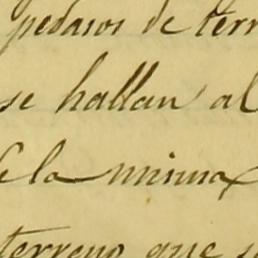 pedasos de terr
se hallan al
de la misma
terreno que s